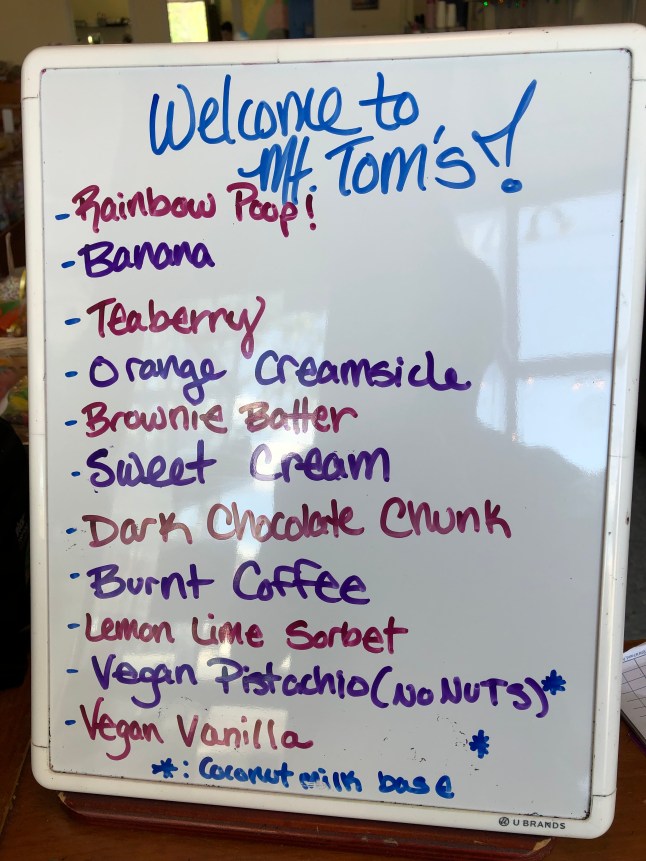 Welcome to
Mt. Tom's!
- Rainbow Poop!
- Banana
- Teaberry
- Orange Creamsicle
- Brownie Batter
- Sweet Cream
- Dark Chocolate Chunk
- Burnt Coffee
- Lemon Lime Sorbet
- Vegan Pistachio (NO NUTS)*
- Vegan Vanilla *
*: Coconut milk base
U BRANDS